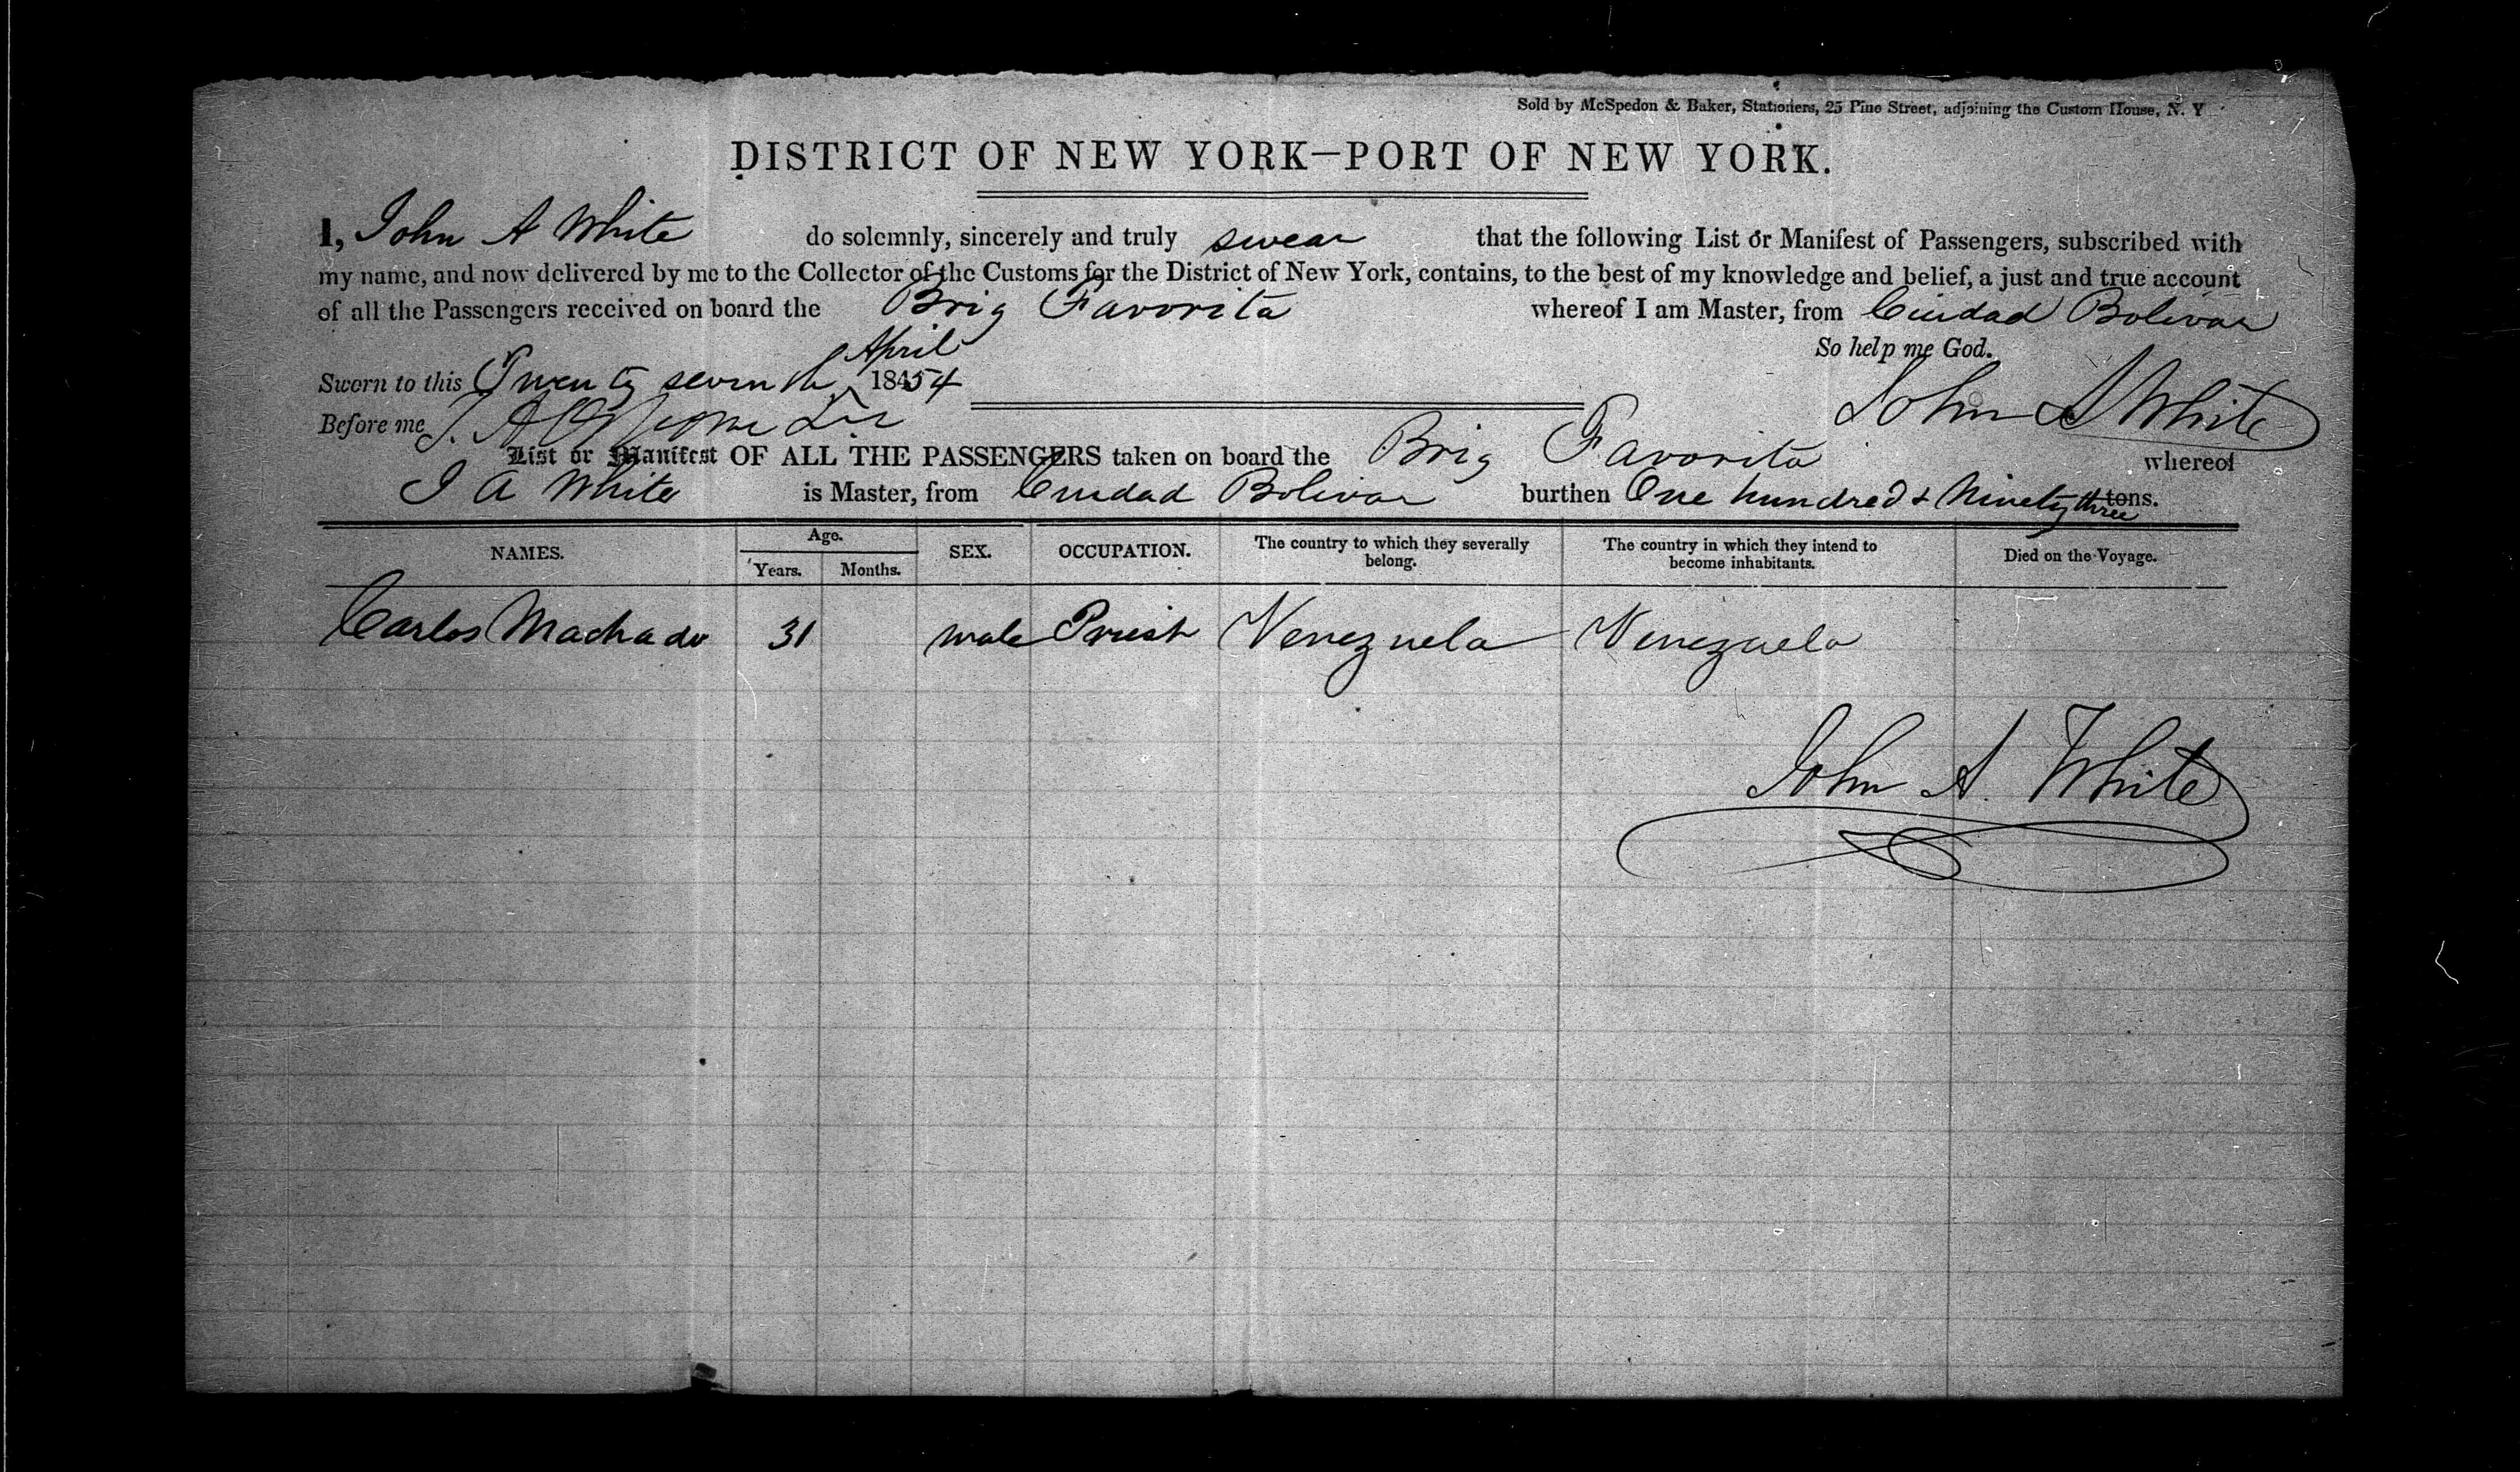 Sold by McSpedon & Baker, Stationers, 25 Pine Street, adjoining the Custom House, N. Y
DISTRICT OF NEW YORK—PORT OF NEW YORK.
I, John A White do solemnly, sincerely and truly swear that the following List or Manifest of Passengers, subscribed with
my name, and now delivered by me to the Collector of the Customs for the District of New York, contains, to the best of my knowledge and belief, a just and true account
of all the Passengers received on board the Brig Favorita whereof I am Master, from Ciudad Bolivar
So help me God.
Sworn to this Twenty seventh April 18454
John A White
Before me
List or Manifest OF ALL THE PASSENGERS taken on board the Brig Favorita whereof
J A White is Master, from Ciudad Bolivar burthen One hundred & Ninety three tons.
NAMES. Age. Years. Months. SEX. OCCUPATION. The country to which they severally belong. The country in which they intend to become inhabitants. Died on the Voyage.
Carlos Machado 31 male Priest Venezuela Venezuela
John A. White